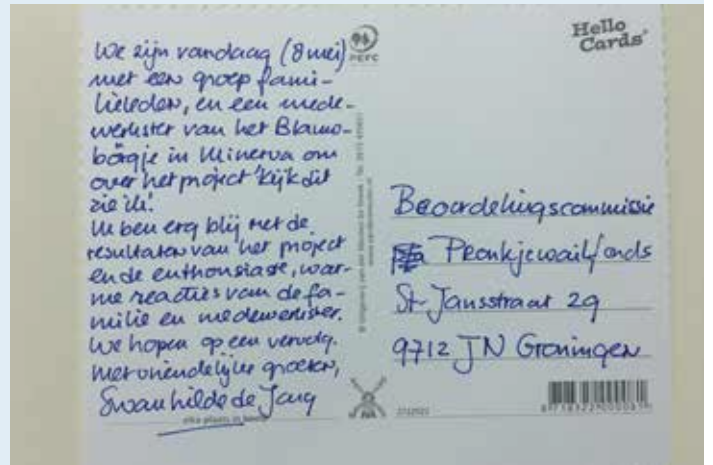 We zijn vandaag (8 mei)
met een groep fami-
lieleden, en een mede-
werkster van het Blauw-
börgje in Minerva om
over het project 'Kijk dit
zie ik!
Ik ben erg blij met de
resultaten van het project
en de enthousiaste, war-
me reacties van de fa-
milie en medewerkster.
We hopen op een vervolg.
Met vriendelijke groeten,
Swanhilde de Jong
PEFC
Hello
Cards
Beoordelingscommissie
Pronkjewailfonds
St. Jansstraat 2g
9712 JN Groningen